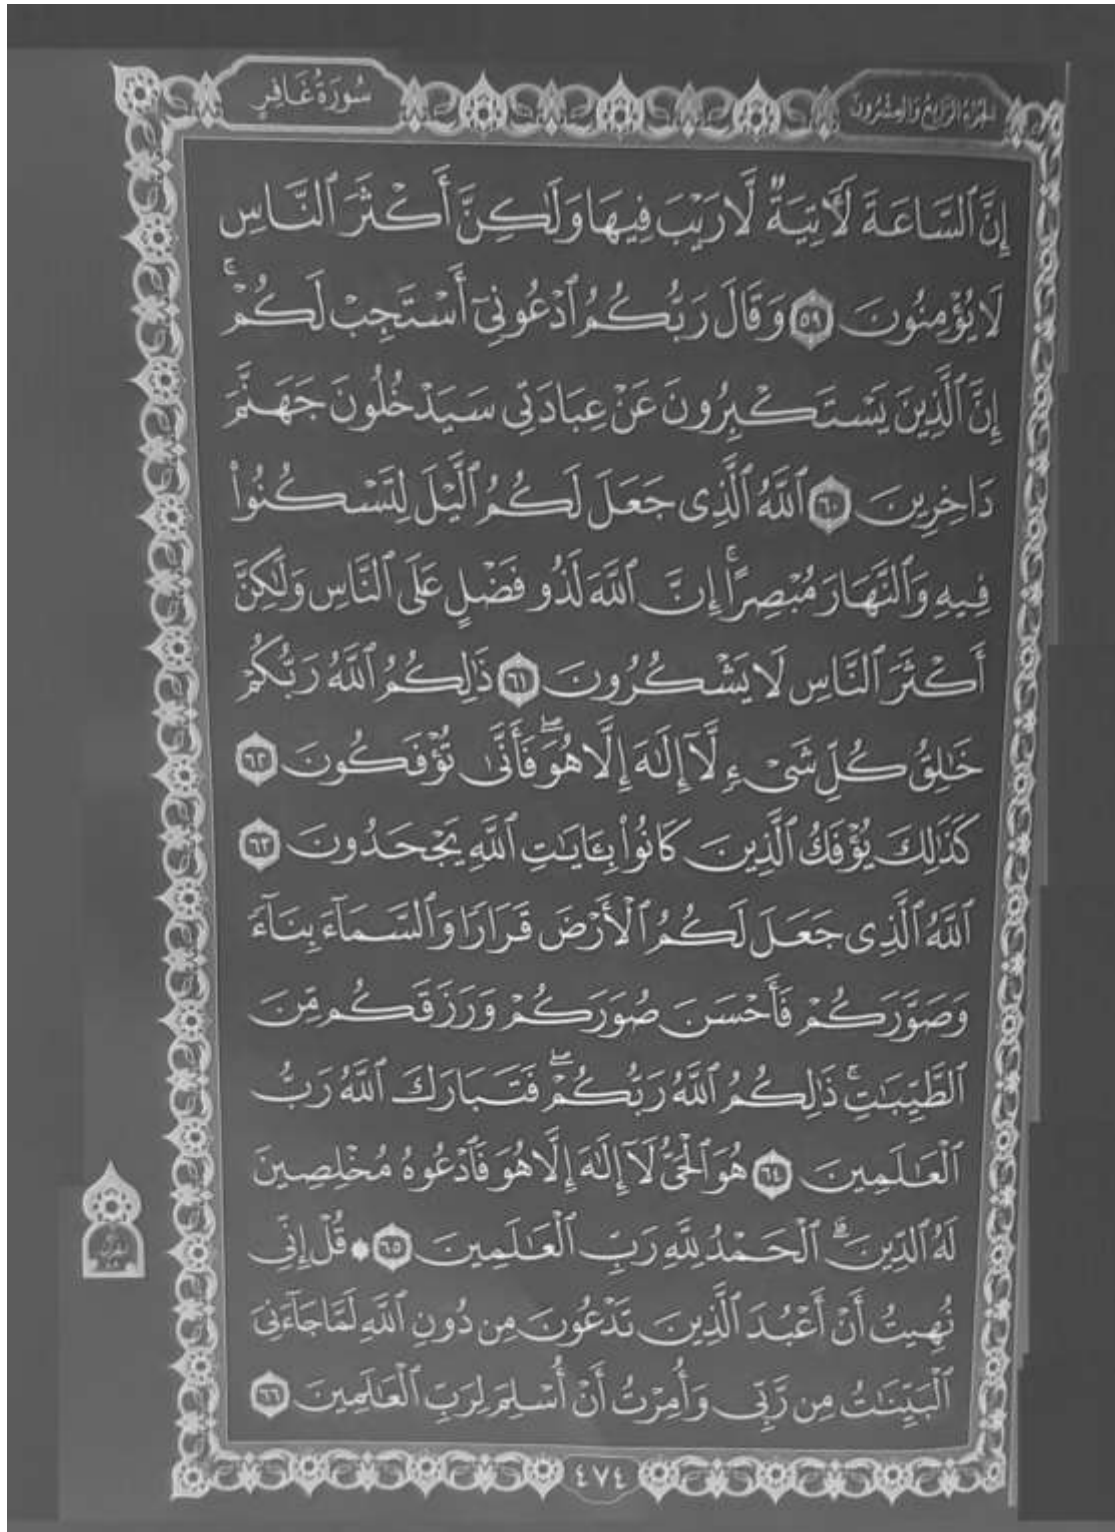 الجزء الرابع والعشرون
سُورَةُ غَافِرٍ
إِنَّ ٱلسَّاعَةَ لَأٓتِيَةٌ لَّا رَيْبَ فِيهَا وَلَٰكِنَّ أَكْثَرَ ٱلنَّاسِ
لَا يُؤْمِنُونَ ٥٩ وَقَالَ رَبُّكُمُ ٱدْعُونِىٓ أَسْتَجِبْ لَكُمْ ۚ
إِنَّ ٱلَّذِينَ يَسْتَكْبِرُونَ عَنْ عِبَادَتِى سَيَدْخُلُونَ جَهَنَّمَ
دَاخِرِينَ ٦٠ ٱللَّهُ ٱلَّذِى جَعَلَ لَكُمُ ٱلَّيْلَ لِتَسْكُنُوا۟
فِيهِ وَٱلنَّهَارَ مُبْصِرًا ۚ إِنَّ ٱللَّهَ لَذُو فَضْلٍ عَلَى ٱلنَّاسِ وَلَٰكِنَّ
أَكْثَرَ ٱلنَّاسِ لَا يَشْكُرُونَ ٦١ ذَٰلِكُمُ ٱللَّهُ رَبُّكُمْ
خَٰلِقُ كُلِّ شَىْءٍ لَّآ إِلَٰهَ إِلَّا هُوَ ۖ فَأَنَّىٰ تُؤْفَكُونَ ٦٢
كَذَٰلِكَ يُؤْفَكُ ٱلَّذِينَ كَانُوا۟ بِـَٔايَٰتِ ٱللَّهِ يَجْحَدُونَ ٦٣
ٱللَّهُ ٱلَّذِى جَعَلَ لَكُمُ ٱلْأَرْضَ قَرَارًا وَٱلسَّمَآءَ بِنَآءً
وَصَوَّرَكُمْ فَأَحْسَنَ صُوَرَكُمْ وَرَزَقَكُم مِّنَ
ٱلطَّيِّبَٰتِ ۚ ذَٰلِكُمُ ٱللَّهُ رَبُّكُمْ ۖ فَتَبَارَكَ ٱللَّهُ رَبُّ
ٱلْعَٰلَمِينَ ٦٤ هُوَ ٱلْحَىُّ لَآ إِلَٰهَ إِلَّا هُوَ فَٱدْعُوهُ مُخْلِصِينَ
لَهُ ٱلدِّينَ ۗ ٱلْحَمْدُ لِلَّهِ رَبِّ ٱلْعَٰلَمِينَ ٦٥ ۞ قُلْ إِنِّى
نُهِيتُ أَنْ أَعْبُدَ ٱلَّذِينَ تَدْعُونَ مِن دُونِ ٱللَّهِ لَمَّا جَآءَنِىَ
ٱلْبَيِّنَٰتُ مِن رَّبِّى وَأُمِرْتُ أَنْ أُسْلِمَ لِرَبِّ ٱلْعَٰلَمِينَ ٦٦
٤٧٤